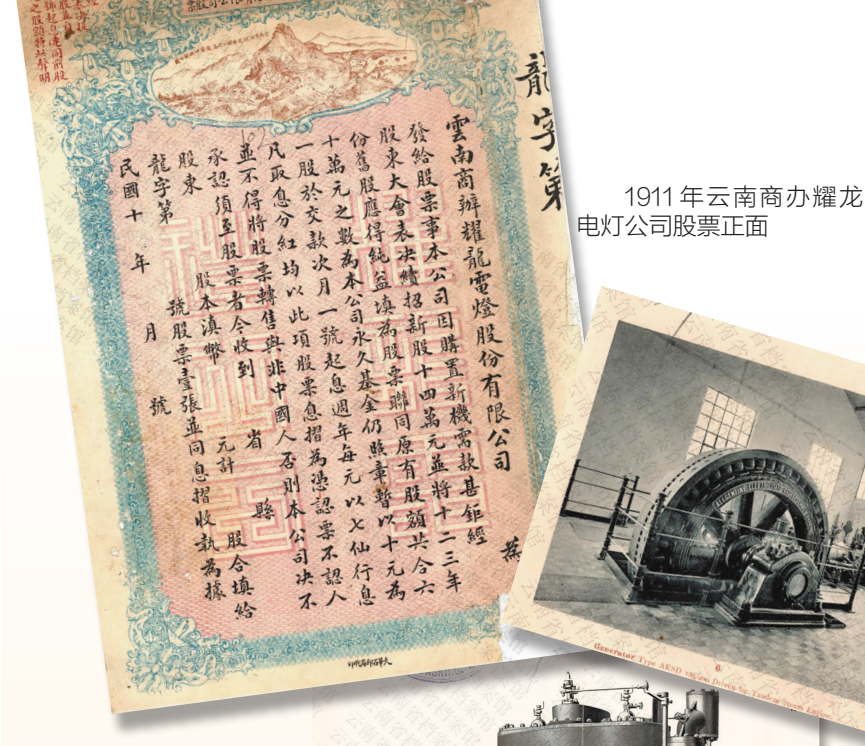 1911年云南商办耀龙
电灯公司股票正面
龍字第
雲南商辦耀龍電燈股份有限公司
為
發給股票事本公司因購置新機需款甚鉅經
股東大會表決續招新股十四萬元並將十二三年
份舊股應得純益填為股票聯同原有股額共合六
十萬元之數為本公司永久基金仍照章暫以十元為
一股於交款次月一號起息週年每元以七仙行息
凡取息分紅均以此項股票息摺為憑認票不認人
並不得將股票轉售與非中國人否則本公司決不
承認須至股票者今收到 省 縣
股東 股本滇幣 元計 股合填給
龍字第 號股票壹張並同息摺收執為據
民國十 年 月 號
Generator Type AKSD